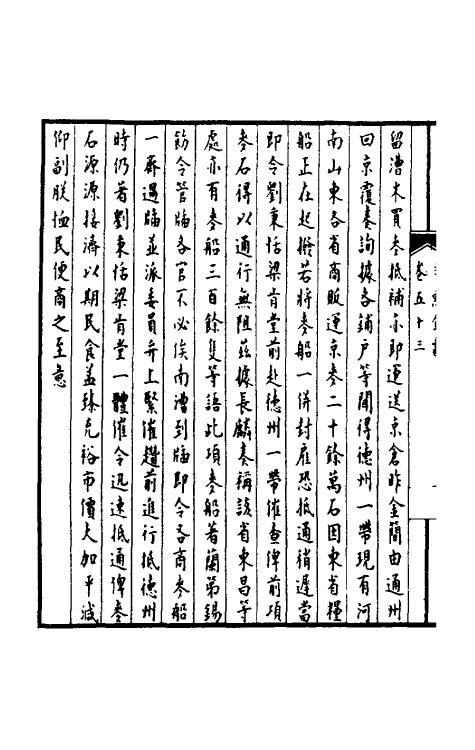 卷五十三
留漕木買麥抵補亦即運送京倉昨金簡由通州
回京覆奏詢據各鋪户等聞得德州一帶現有河
南山東各省商販運京麥二十餘萬石因東省糧
船正在起撥若將麥船一併封雇恐抵通稍遲當
即令劉秉恬梁肯堂前赴德州一帶催查俾前項
麥石得以通行無阻茲據長麟奏稱該省東昌等
處亦有麥船三百餘隻等語此項麥船著蘭第錫
飭令管牐各官不必俟南漕到牐即令各商麥船
一齊過牐並派委員弁上緊催趲前進行抵德州
時仍著劉秉恬梁肯堂一體催令迅速抵通俾麥
石源源接濟以期民食益臻充裕市價大加平減
仰副朕恤民便商之至意